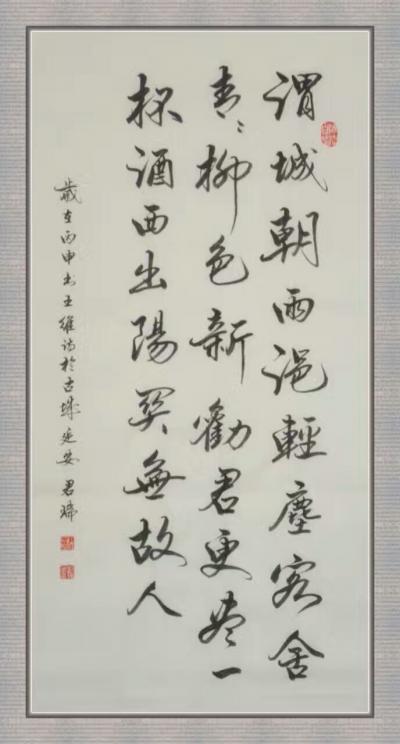 渭城朝雨浥輕塵客舍
青々柳色新勸君更盡一
杯酒西出陽關無故人
歲在丙申书王維詩於古城延安 君